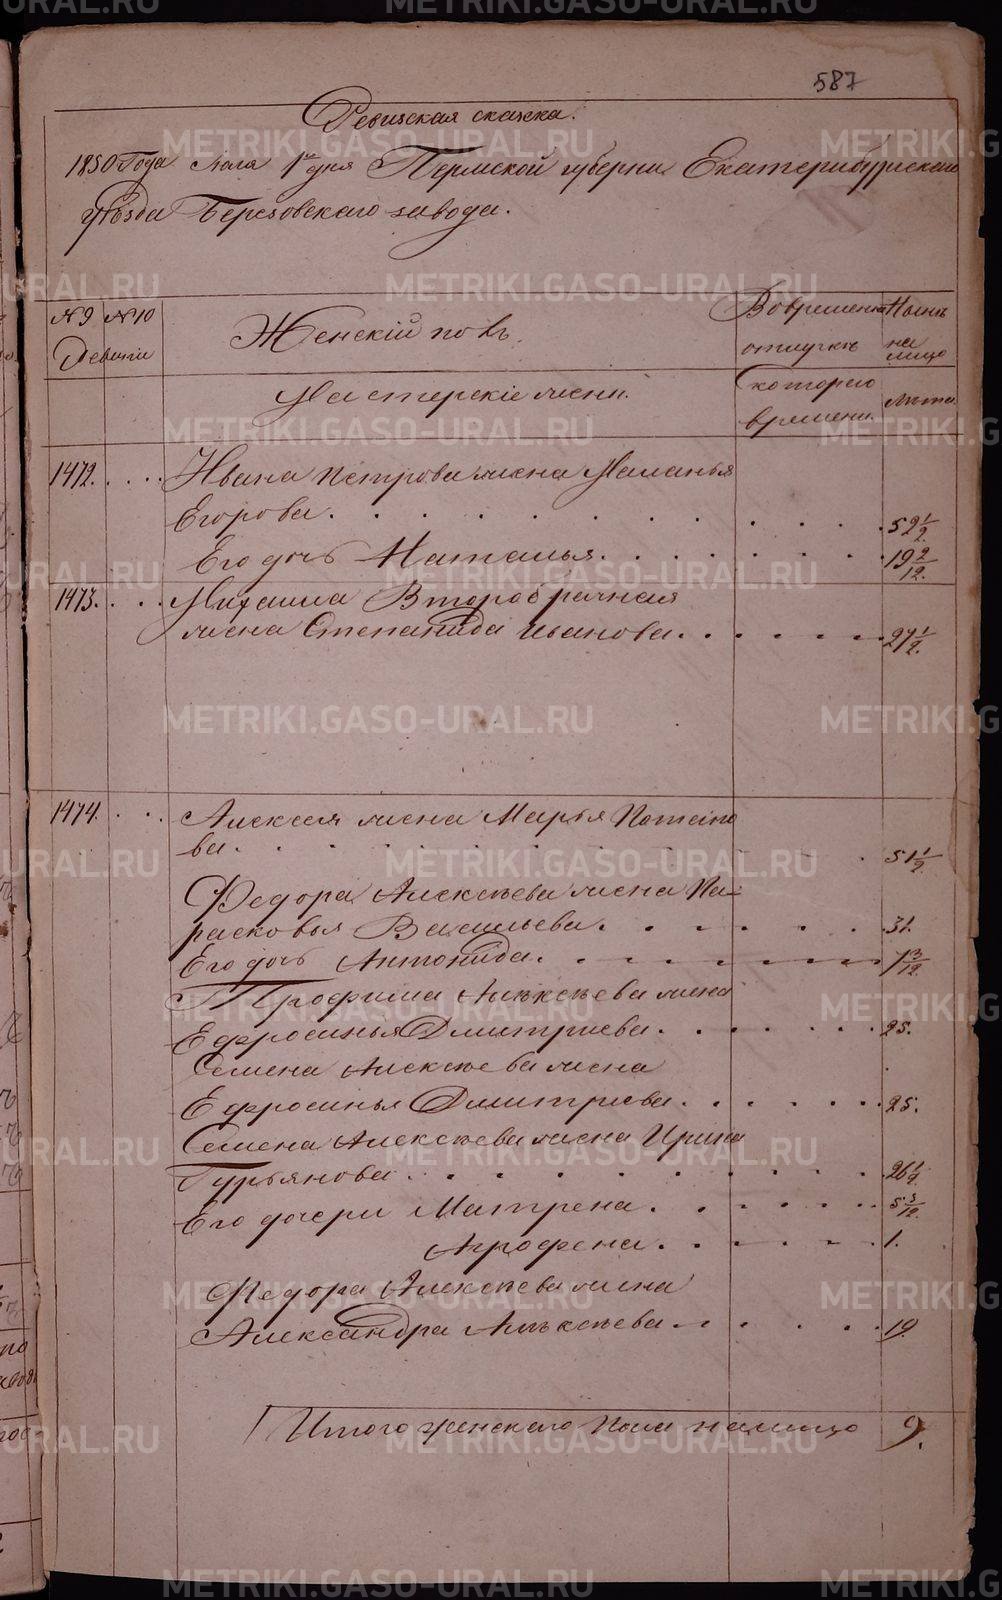 587
Ревизская сказка.
1850 Года Июля 1го дня Пермской губернии Екатеринбургскаго
уѣзда Березовскаго завода.
№ 9 № 10
Ревизіи
Женскій полъ.
Во временной
отлучкѣ
Нынѣ
на
лицо
Мастерскіе жены.
с котораго
времени.
лѣта.
1472. . . . . Ивана Петрова жена Маланья
Егорова. . . . . . . . . . . 52 1/2
Его дочь Наталья. . . . . . . 19 2/12.
1473. . . . Михаила Второбрачная
жена Степанида Иванова. . . . . . 27 1/2.
1474. . . . Алексея жена Марья Потапо
ва. . . . . . . . . . . 51 1/2
Федора Алексѣева жена Па-
расковья Васильева. . . . . . 31.
Его дочь Антонида. . . . . . . 1 3/12.
Трофима Алексѣева жена
Ефросинья Дмитриева. . . . . . 25.
Семена Алексѣева жена
Ефросинья Дмитриева. . . . . . 25.
Семена Алексѣева жена Ирина
Гурьянова. . . . . . . . . 26 1/4.
Его дочери Матрена. . . . . . 5 3/12.
Агрофена. . . . . . 1.
Федора Алексѣева жена
Александра Алексѣева. . . . . . 19.
Итого женскаго пола на лицо 9.
METRIKI.GASO-URAL.RU